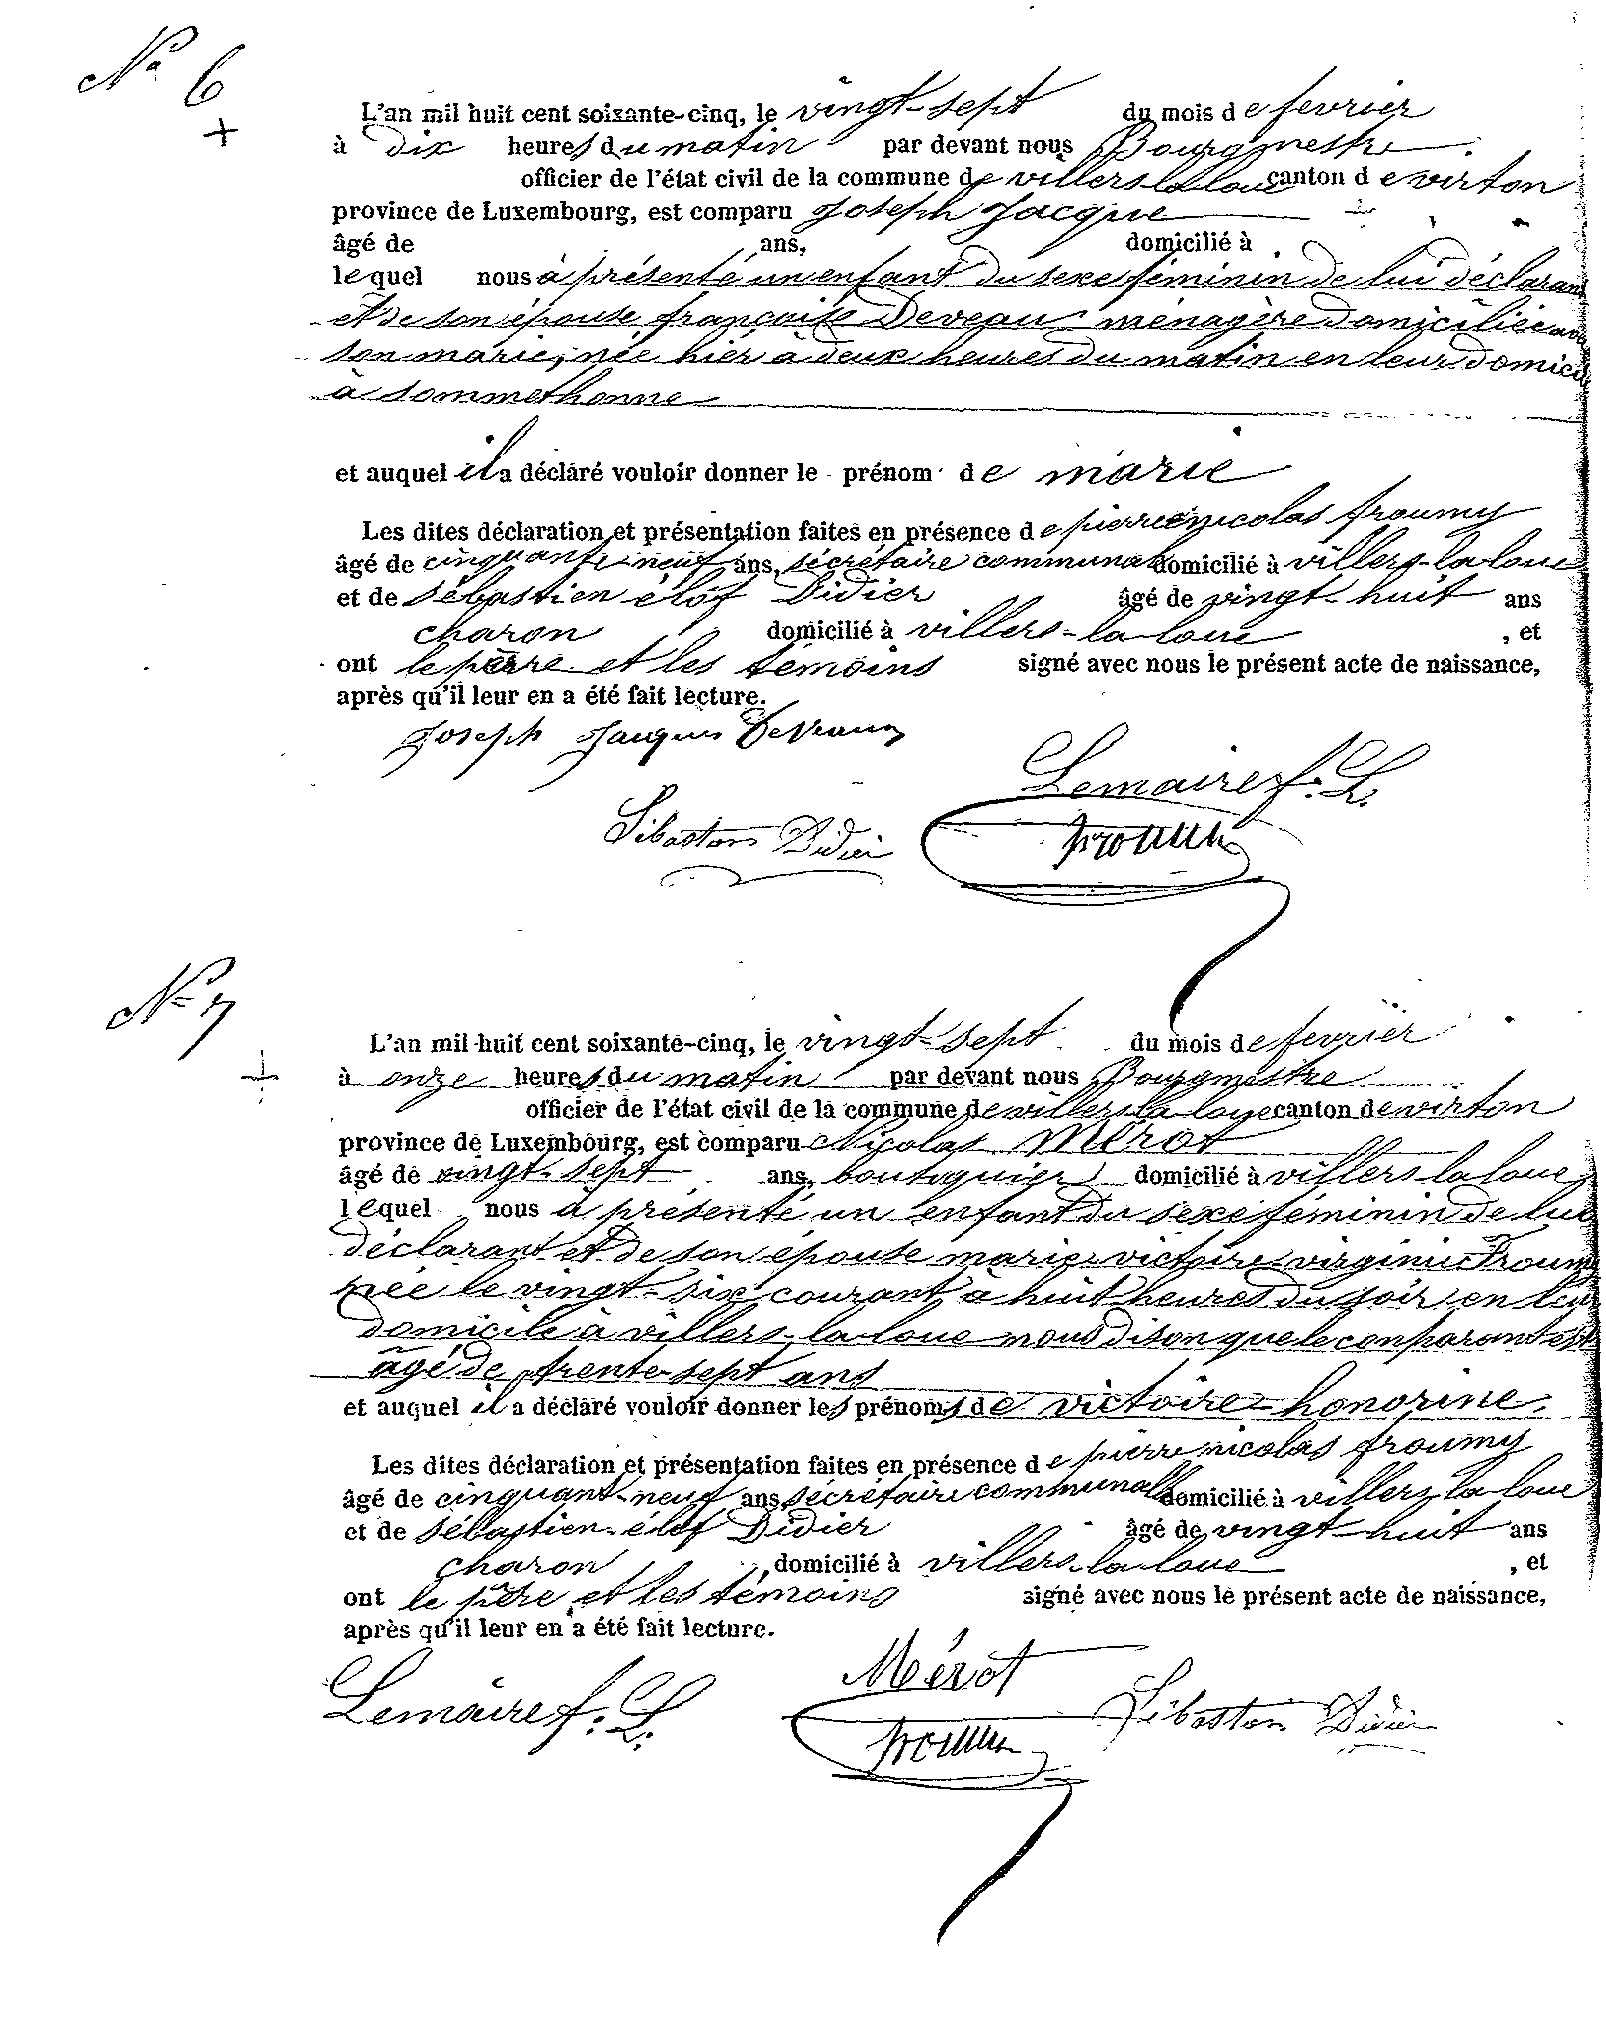 N° 6
+
L'an mil huit cent soixante-cinq, le vingt-sept du mois de fevrier
à dix heures du matin par devant nous Bourgmestre
officier de l'état civil de la commune de villers-la-loue canton de virton
province de Luxembourg, est comparu Joseph Jacque
âgé de ans, domicilié à
lequel nous à présenté un enfant du sexe féminin de lui déclarant
et de son épouse françoise Deveau ménagère domiciliée avec
son marie, née hier à deux heures du matin en leur domicile
à sommethonne
et auquel il a déclaré vouloir donner le prénom de marie
Les dites déclaration et présentation faites en présence de pierre nicolas froumy
âgé de cinquante-neuf ans, sécrétaire communal domicilié à villers-la-loue
et de sébastien élôf Didier âgé de vingt-huit ans
charon domicilié à villers-la-loue , et
ont le père et les témoins signé avec nous le présent acte de naissance,
après qu'il leur en a été fait lecture.
Joseph Jacques
Lemaire f. L.
Sibastien Didier
N° 7
+
L'an mil huit cent soixante-cinq, le vingt-sept du mois de fevrier
à onze heures du matin par devant nous Bourgmestre
officier de l'état civil de la commune de villers-la-loue canton de virton
province de Luxembourg, est comparu Nicolas Mérot
âgé de vingt-sept ans, boutiquier domicilié à villers-la-loue
lequel nous à présenté un enfant du sexe féminin de lui
déclarant et de son épouse marie-victoire-virginie Froumy
née le vingt-six courant à huit heures du soir en leur
domicile à villers-la-loue nous dison que le conparant est
âgé de trente-sept ans
et auquel il a déclaré vouloir donner les prénoms de victoire-honorine.
Les dites déclaration et présentation faites en présence de pierre nicolas froumy
âgé de cinquant-neuf ans, sécrétaire communal domicilié à villers-la-loue
et de sébastien-élof Didier âgé de vingt-huit ans
charon domicilié à villers-la-loue , et
ont le père et les témoins signé avec nous le présent acte de naissance,
après qu'il leur en a été fait lecture.
Mérot
Lemaire f. L.
Sibastien Didier